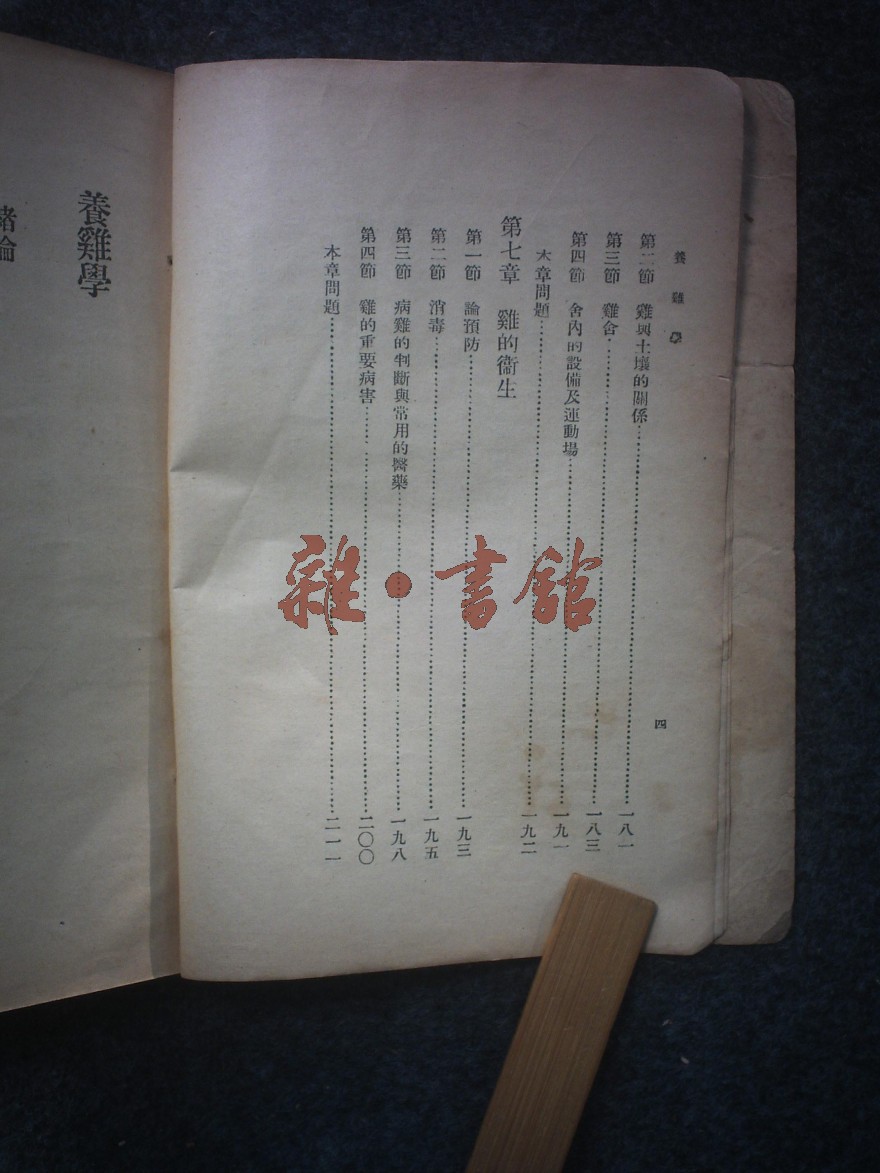 養雞學
四
第二節 雞與土壤的關係……一八一
第三節 雞舍……一八三
第四節 舍內的設備及運動場……一九一
本章問題……一九二
第七章 雞的衞生
第一節 論預防……一九三
第二節 消毒……一九五
第三節 病雞的判斷與常用的醫藥……一九八
第四節 雞的重要病害……二〇〇
本章問題……二一一
養雞學
緒論
雜·書館